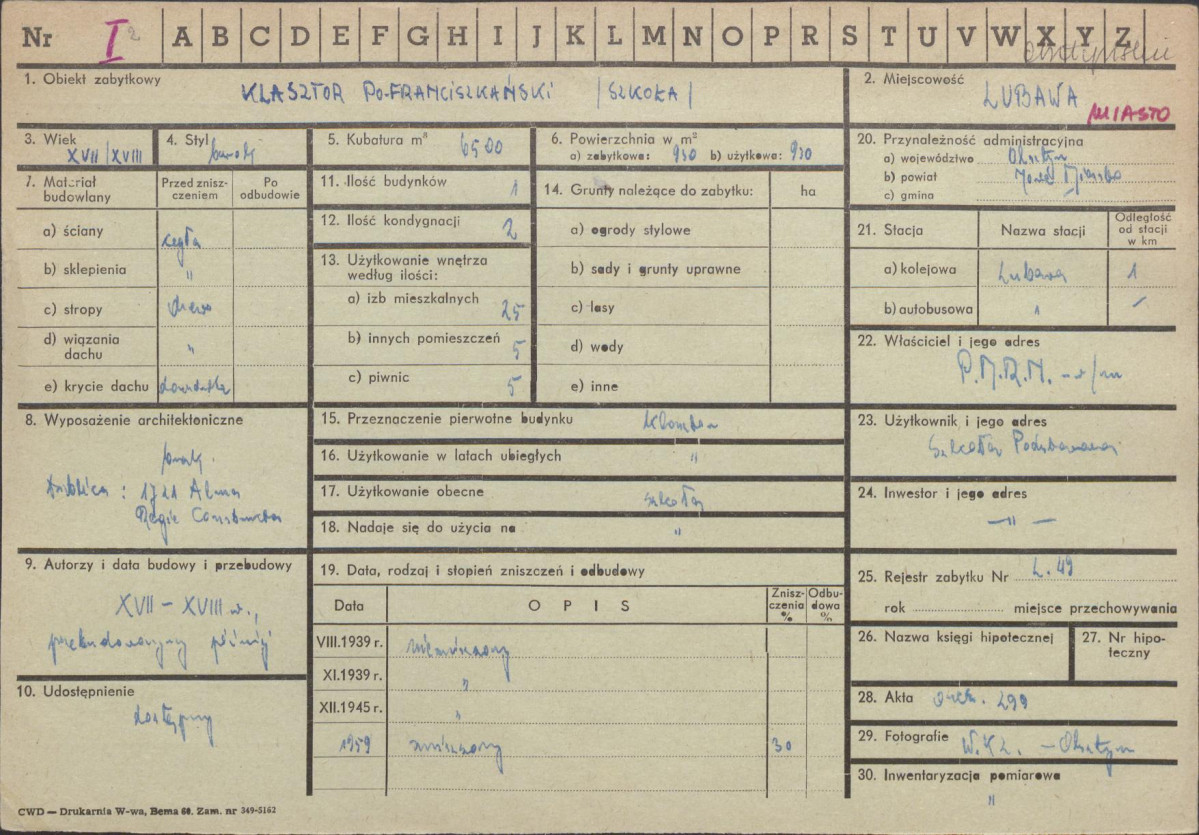 Nr I 2 A B C D E F G H I J K L M N O P R S T U V W X Y Z
1. Obiekt zabytkowy
KLASZTOR PO-FRANCISZKAŃSKI /SZKOŁA/
2. Miejscowość
LUBAWA
MIASTO
3. Wiek
XVII/XVIII
4. Styl
barok
5. Kubatura m³ 6500
6. Powierzchnia w m²
a) zabytkowa: 930 b) użytkowa: 930
20. Przynależność administracyjna
a) województwo Olsztyn
b) powiat Nowe Miasto
c) gmina
7. Materiał budowlany
Przed zniszczeniem
Po odbudowie
a) ściany cegła
b) sklepienia "
c) stropy drewno
d) wiązania dachu "
e) krycie dachu dachówka
11. Ilość budynków 1
12. Ilość kondygnacji 2
13. Użytkowanie wnętrza
według ilości:
a) izb mieszkalnych 25
b) innych pomieszczeń 5
c) piwnic 5
14. Grunty należące do zabytku: ha
a) ogrody stylowe
b) sady i grunty uprawne
c) lasy
d) wody
e) inne
21. Stacja
Nazwa stacji
Odległość
od stacji
w km
a) kolejowa Lubawa 1
b) autobusowa "
22. Właściciel i jego adres
P.M.R.N. – w/m
8. Wyposażenie architektoniczne
Tablica: 1721 Alma
9. Autorzy i data budowy i przebudowy
XVII – XVIII w.,
przebudowany później
10. Udostępnienie
dostępny
15. Przeznaczenie pierwotne budynku klasztor
16. Użytkowanie w latach ubiegłych "
17. Użytkowanie obecne szkoła
18. Nadaje się do użycia na "
19. Data, rodzaj i stopień zniszczeń i odbudowy
Data
OPIS
Zniszczenia %
Odbudowa %
VIII.1939 r. niezniszczony
XI.1939 r. "
XII.1945 r. "
1959 zniszczony 30
23. Użytkownik i jego adres
Szkoła Podstawowa
24. Inwestor i jego adres
– " –
25. Rejestr zabytku Nr L. 49
rok miejsce przechowywania
26. Nazwa księgi hipotecznej
27. Nr hipoteczny
28. Akta arch. 299
29. Fotografie W.K.Z. – Olsztyn
30. Inwentaryzacja pomiarowa
"
CWD — Drukarnia W-wa, Bema 60. Zam. nr 349-5162